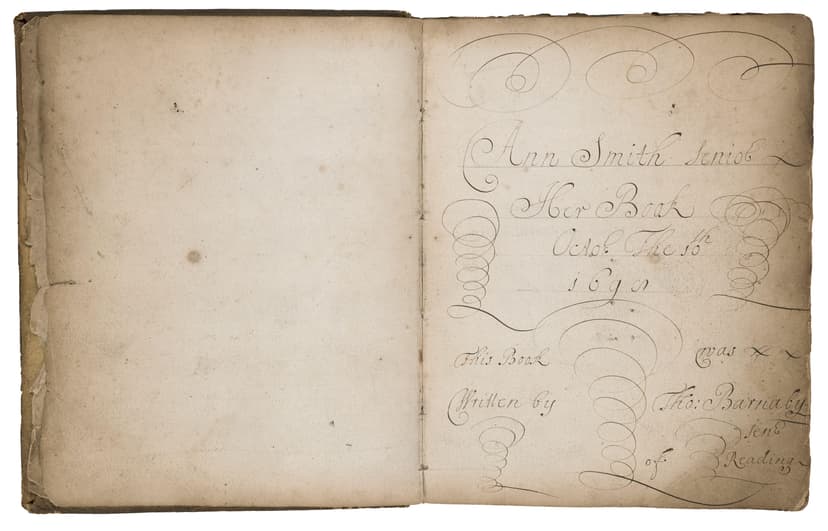 Ann Smith senior
Her Book
Octob: The 10th
This Book was
Written by Tho: Barnaby
senr
of Reading